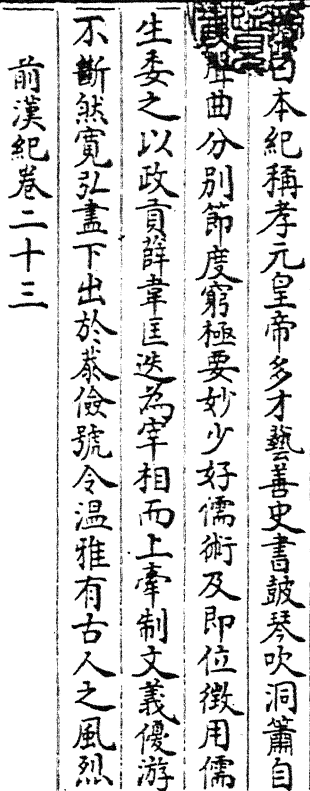 賛曰本紀稱孝元皇帝多才藝善史書鼓琴吹洞簫自
聲曲分別節度窮極要妙少好儒術及即位徵用儒
生委之以政貢薛韋匡迭為宰相而上牽制文義優游
不斷然寛弘盡下出於恭儉號令温雅有古人之風烈
前漢紀卷二十三